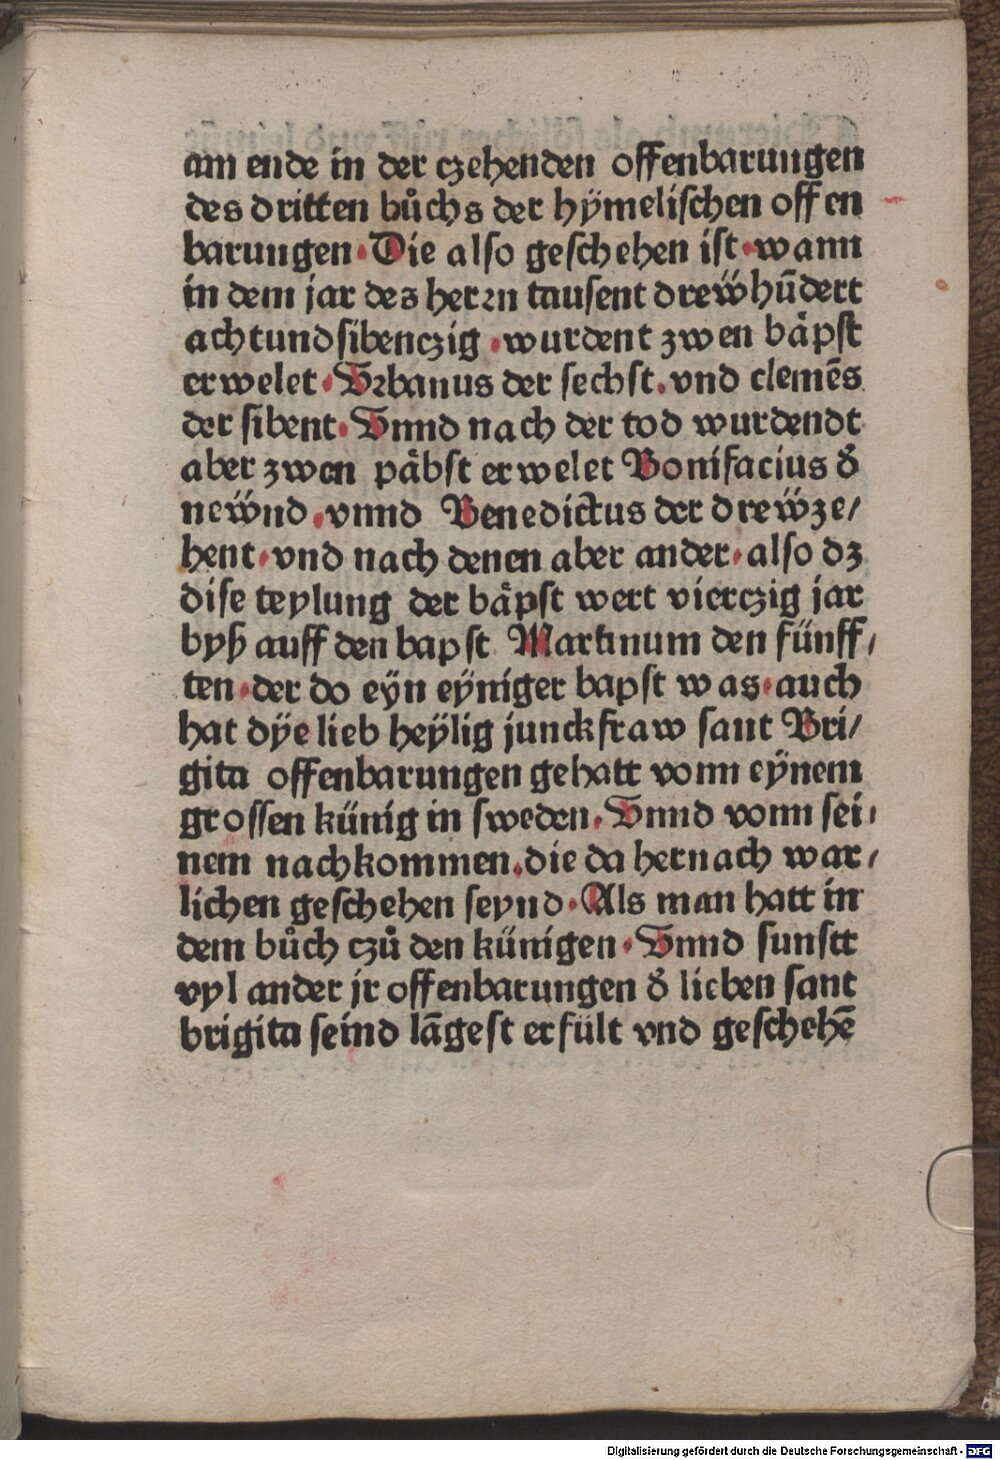 am ende in der czehenden offenbarungen
des dritten bůchs der hÿmelischen offen
barungen· Die also geschehen ist· wann
in dem jar des herꝛn tausent drewͤhūdert
achtundsibenczig ·wurdent zwen bäpst
erwelet· Vꝛbanus der sechst. vnd clemēs
der sibent· Vnnd nach der tod wurdendt
aber zwen päbst erwelet Bonifacius d̕
newͤnd .vnnd Benedictus der drewͤze/
hent· vnd nach denen aber ander· also dz
dise teylung der bäpst wert vierczig jar
byß auff den bapst Martinum den fünff/
ten· der do eÿn eÿniger bapst was· auch
hat dÿe lieb heÿlig junckfraw sant Bri/
gita offenbarungen gehatt vonn eÿnem
grossen künig in sweden. Vnnd vonn sei/
nem nachkommen. die da hernach war/
lichen geschehen seynd· Als man hatt in
dem bůch czů den künigen· Vnnd sunstt
vyl ander jr offenbarungen d̕ lieben sant
brigita seind lāgest erfült vnd geschehē
Digitalisierung gefördert durch die Deutsche Forschungsgemeinschaft - DFG